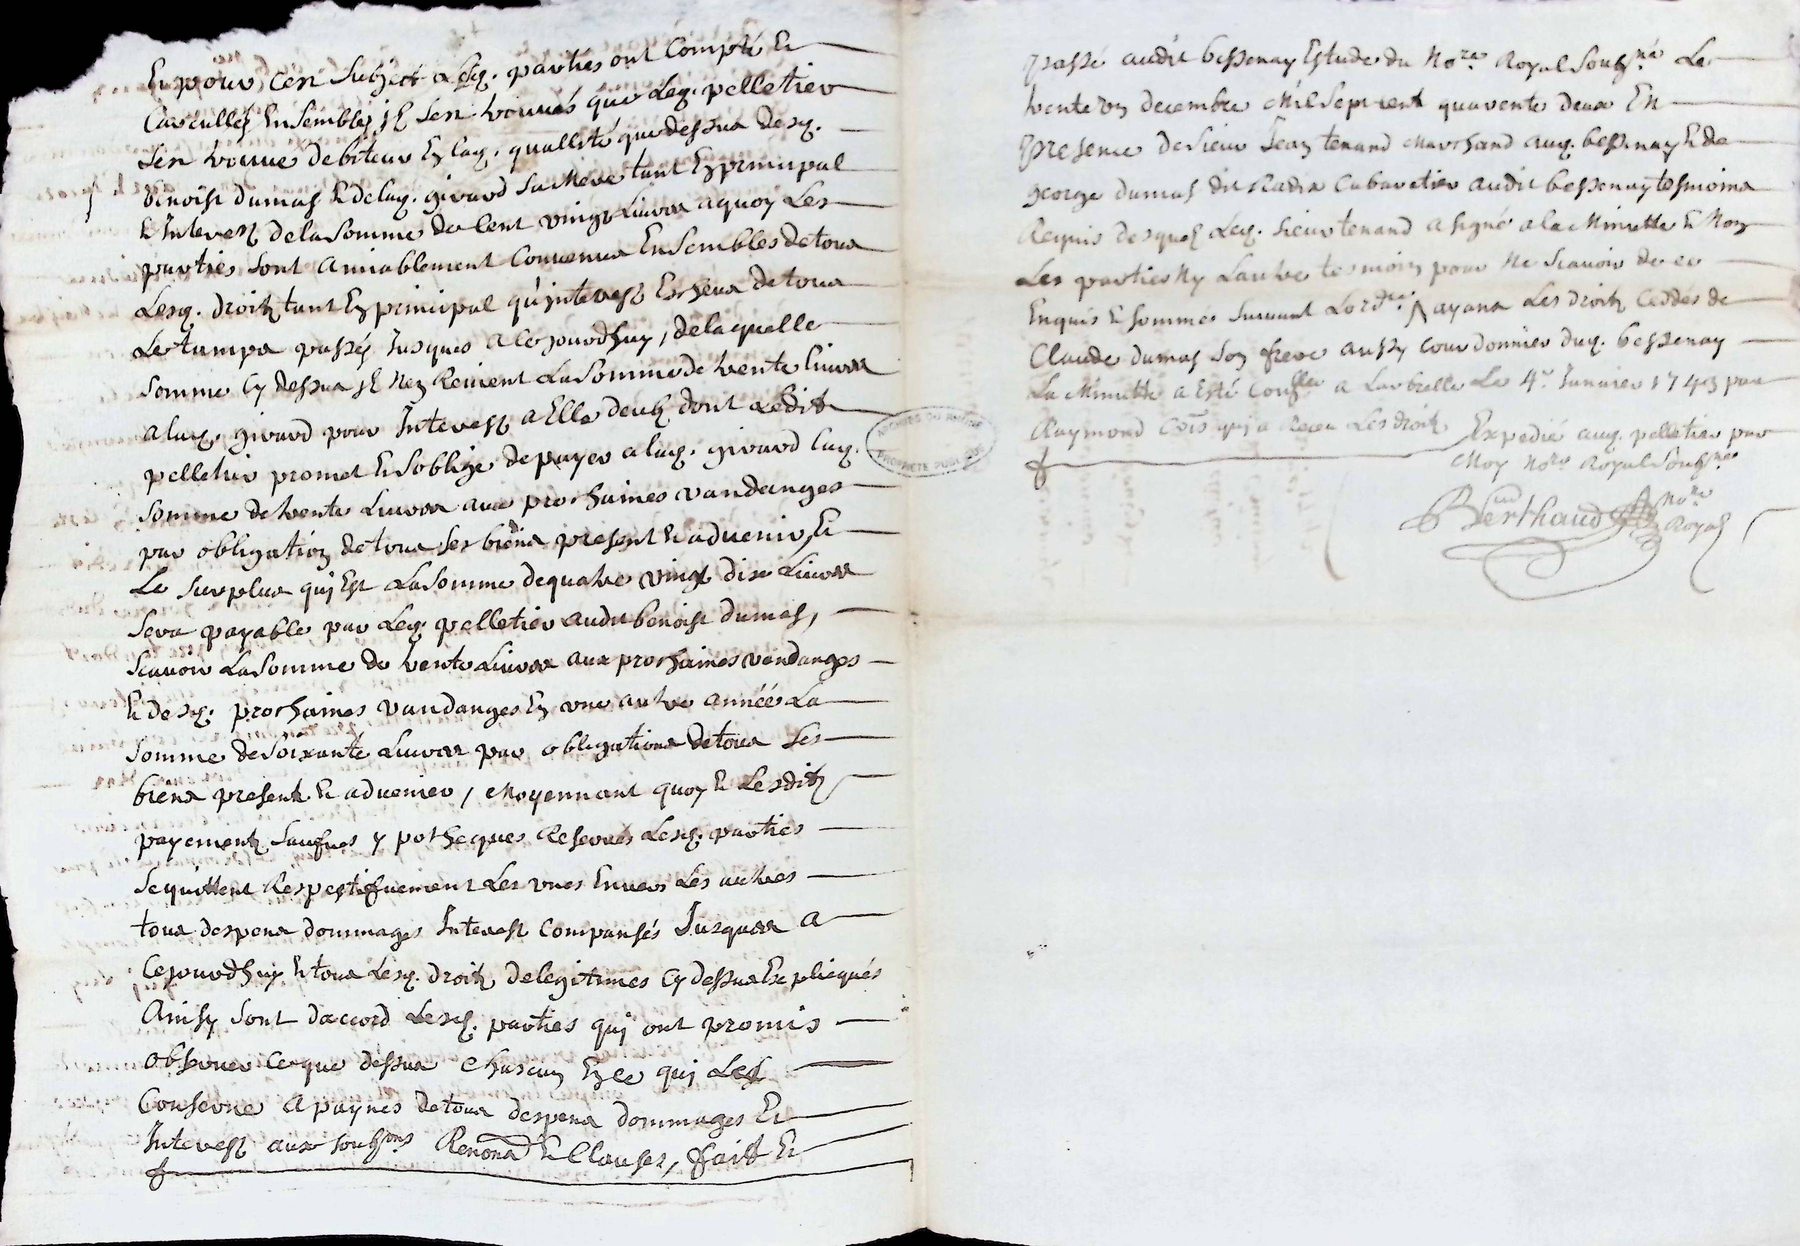 Et pour cest subject Lesd. parties ont Compté Et
Carcullez Ensembles, Il sest trouvés que Led. pelletier
sest trouve debiteur En lad. quallité que dessus desd.
benoist dumas Et de lad. girard sa Mere tant En principal
Et Interest de la Somme de Cent vingt Livres a quoy Les
parties sont amiablement Convenus Ensembles de tous
Lesd. droitz tant En principal qu'interest Escheus de tous
Le temps passés Jusques a ce jourdhuy, de laquelle
somme Cy dessus Il Reuient La Somme de trente Liures
a lad. girard pour Interest a Elle deuhz dont Ledit
pelletier promet Et s'oblige de payer a lad. girard lad.
Somme de trente Liures aux prochaines vandanges
par obligation de tous ses biens present Et aduenir, Et
Le surplus qui Est La Somme de quatre vingt dix Liures
sera payable par Led. pelletier audit benoist dumas,
scauoir La Somme de trente Liures aux prochaines vandanges
Et desd. prochaines vandanges En une autre années La
somme de soixante Liures par obligations de tous ses
biens present Et aduenir, Moyennant quoy Et Lesditz
payementz saufues ypotheques Reserués Lesd. parties
se quittent Respectifuement Les unes Enuers Les autres
tous despens dommages Interest Compansés Jusques a
Cejourdhuy Et tous Lesd. droitz de legitimes Cy dessus Expliqués
Ainsy sont daccord Lesd. parties qui ont promis
obseruer Ce que dessus Chascun En ce qui Les
Conserne a paynes de tous despens dommages Et
Interest aux soubz.ons Renona.on Et Clauses, fait Et
passé audit bessenay Estude du No.re Royal Soubz.né Le
trente un decembre Mil Sept cent quarente deux En
presence de Sieur Jean tenand Marchand aud. bessenay Et de
george dumas dit Cabaretier audit bessenay tesmoins
Requis desquelz Led. Sieur tenand a signé a la Minutte Et Non
Les parties Ny Lautre tesmoin pour Ne Scauoir de ce
Enquis Et sommes suiuant Lord.ce ayans Les droitz Ceddés de
Claude dumas son frere aussy Courdonnier dud. bessenay
La Minutte a Esté Con.llée a Larbrelle Le 4.e Januier 1743 par
Raymond Co.is qui a Receu Les droitz Expedié aud. pelletier par
Moy No.re Royal Soubz.né
Berthaud No.re
Royal
ARCHIVES DU RHÔNE
PROPRIÉTÉ PUBLIQUE